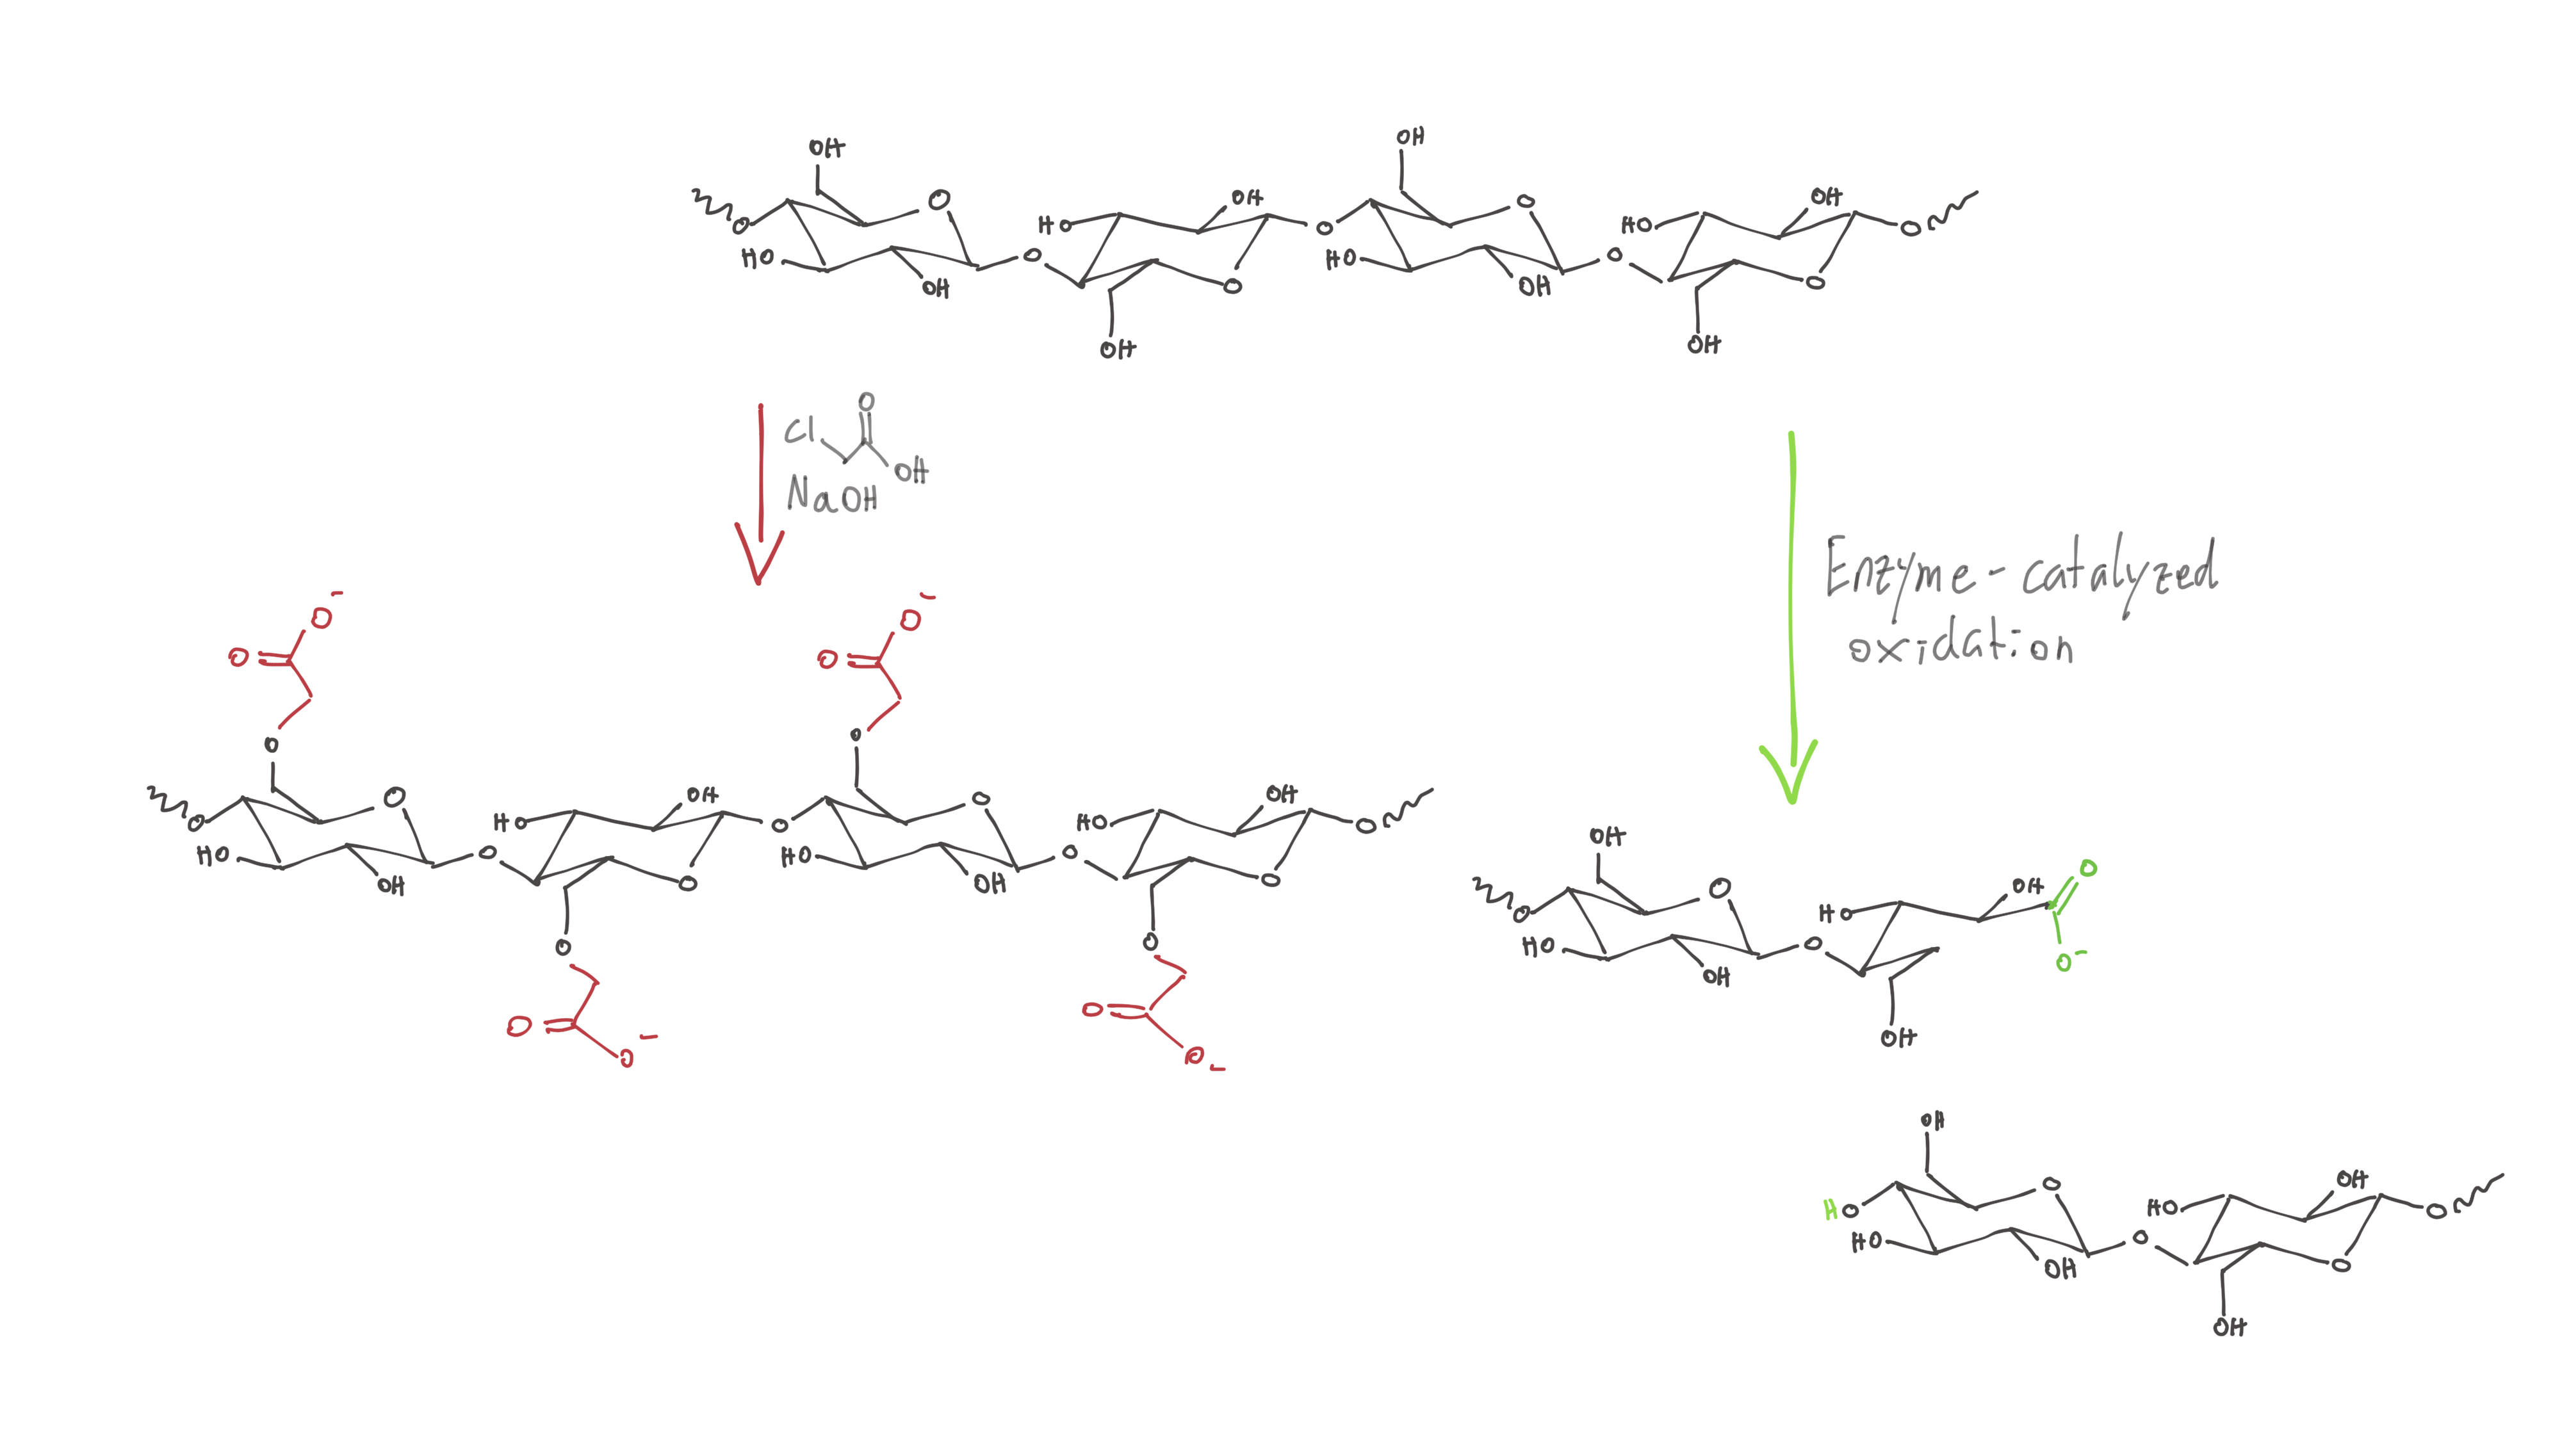 OH OH
O OH O OH
O HO O HO O
HO O HO O
OH O OH O
OH OH
O
Cl
OH
NaOH
Enzyme-catalyzed
oxidation
O⁻ O⁻
O O
O O
O OH O OH
O HO O HO O
HO O HO O
OH O OH O
O O
O O
O⁻ O⁻
OH
O OH O
O HO
HO O O⁻
OH
OH
OH
O OH
HO HO O
HO O
OH O
OH